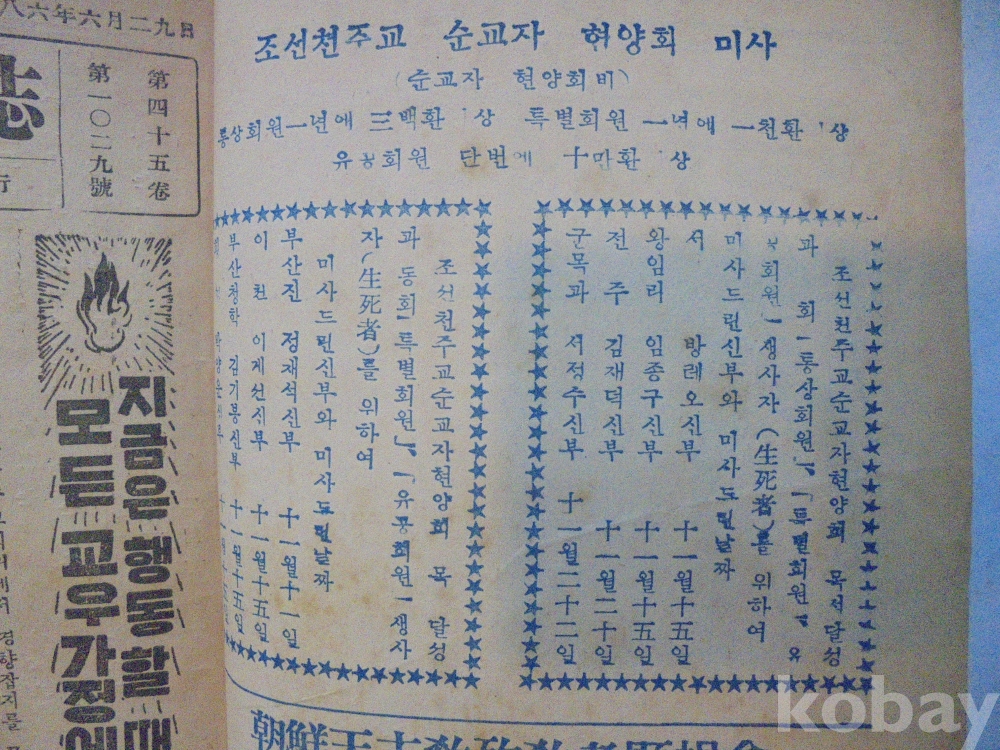 조선천주교 순교자 현양회 미사
(순교자 현양회비)
통상회원 一년에 三백환 이상 특별회원 一년에 一천환 이상
유공회원 단번에 十만환 이상
조선천주교순교자현양회 목적달성
과 회「통상회원」「특별회원」유
회원」생사자(生死者)를 위하여
미사드린신부와 미사드린날짜
서 방레오신부 十一월十五일
왕림리 임종구신부 十一월十五일
전주 김재덕신부 十一월二十일
군목과 서정수신부 十一월二十二일
조선천주교순교자현양회 목 달성
과 동회「특별회원」「유공회원」생사
자(生死者)를 위하여
미사드린신부와 미사드린날짜
부산진 정재석신부 十一월十一일
이천 이게선신부 十一월十五일
부산청학 김기봉신부 十一월十五일
八六年六月二九日
誌
第四十五卷
第一〇二九號
行
지금은행동할때
모든교우가정에
경향잡지를
kobay